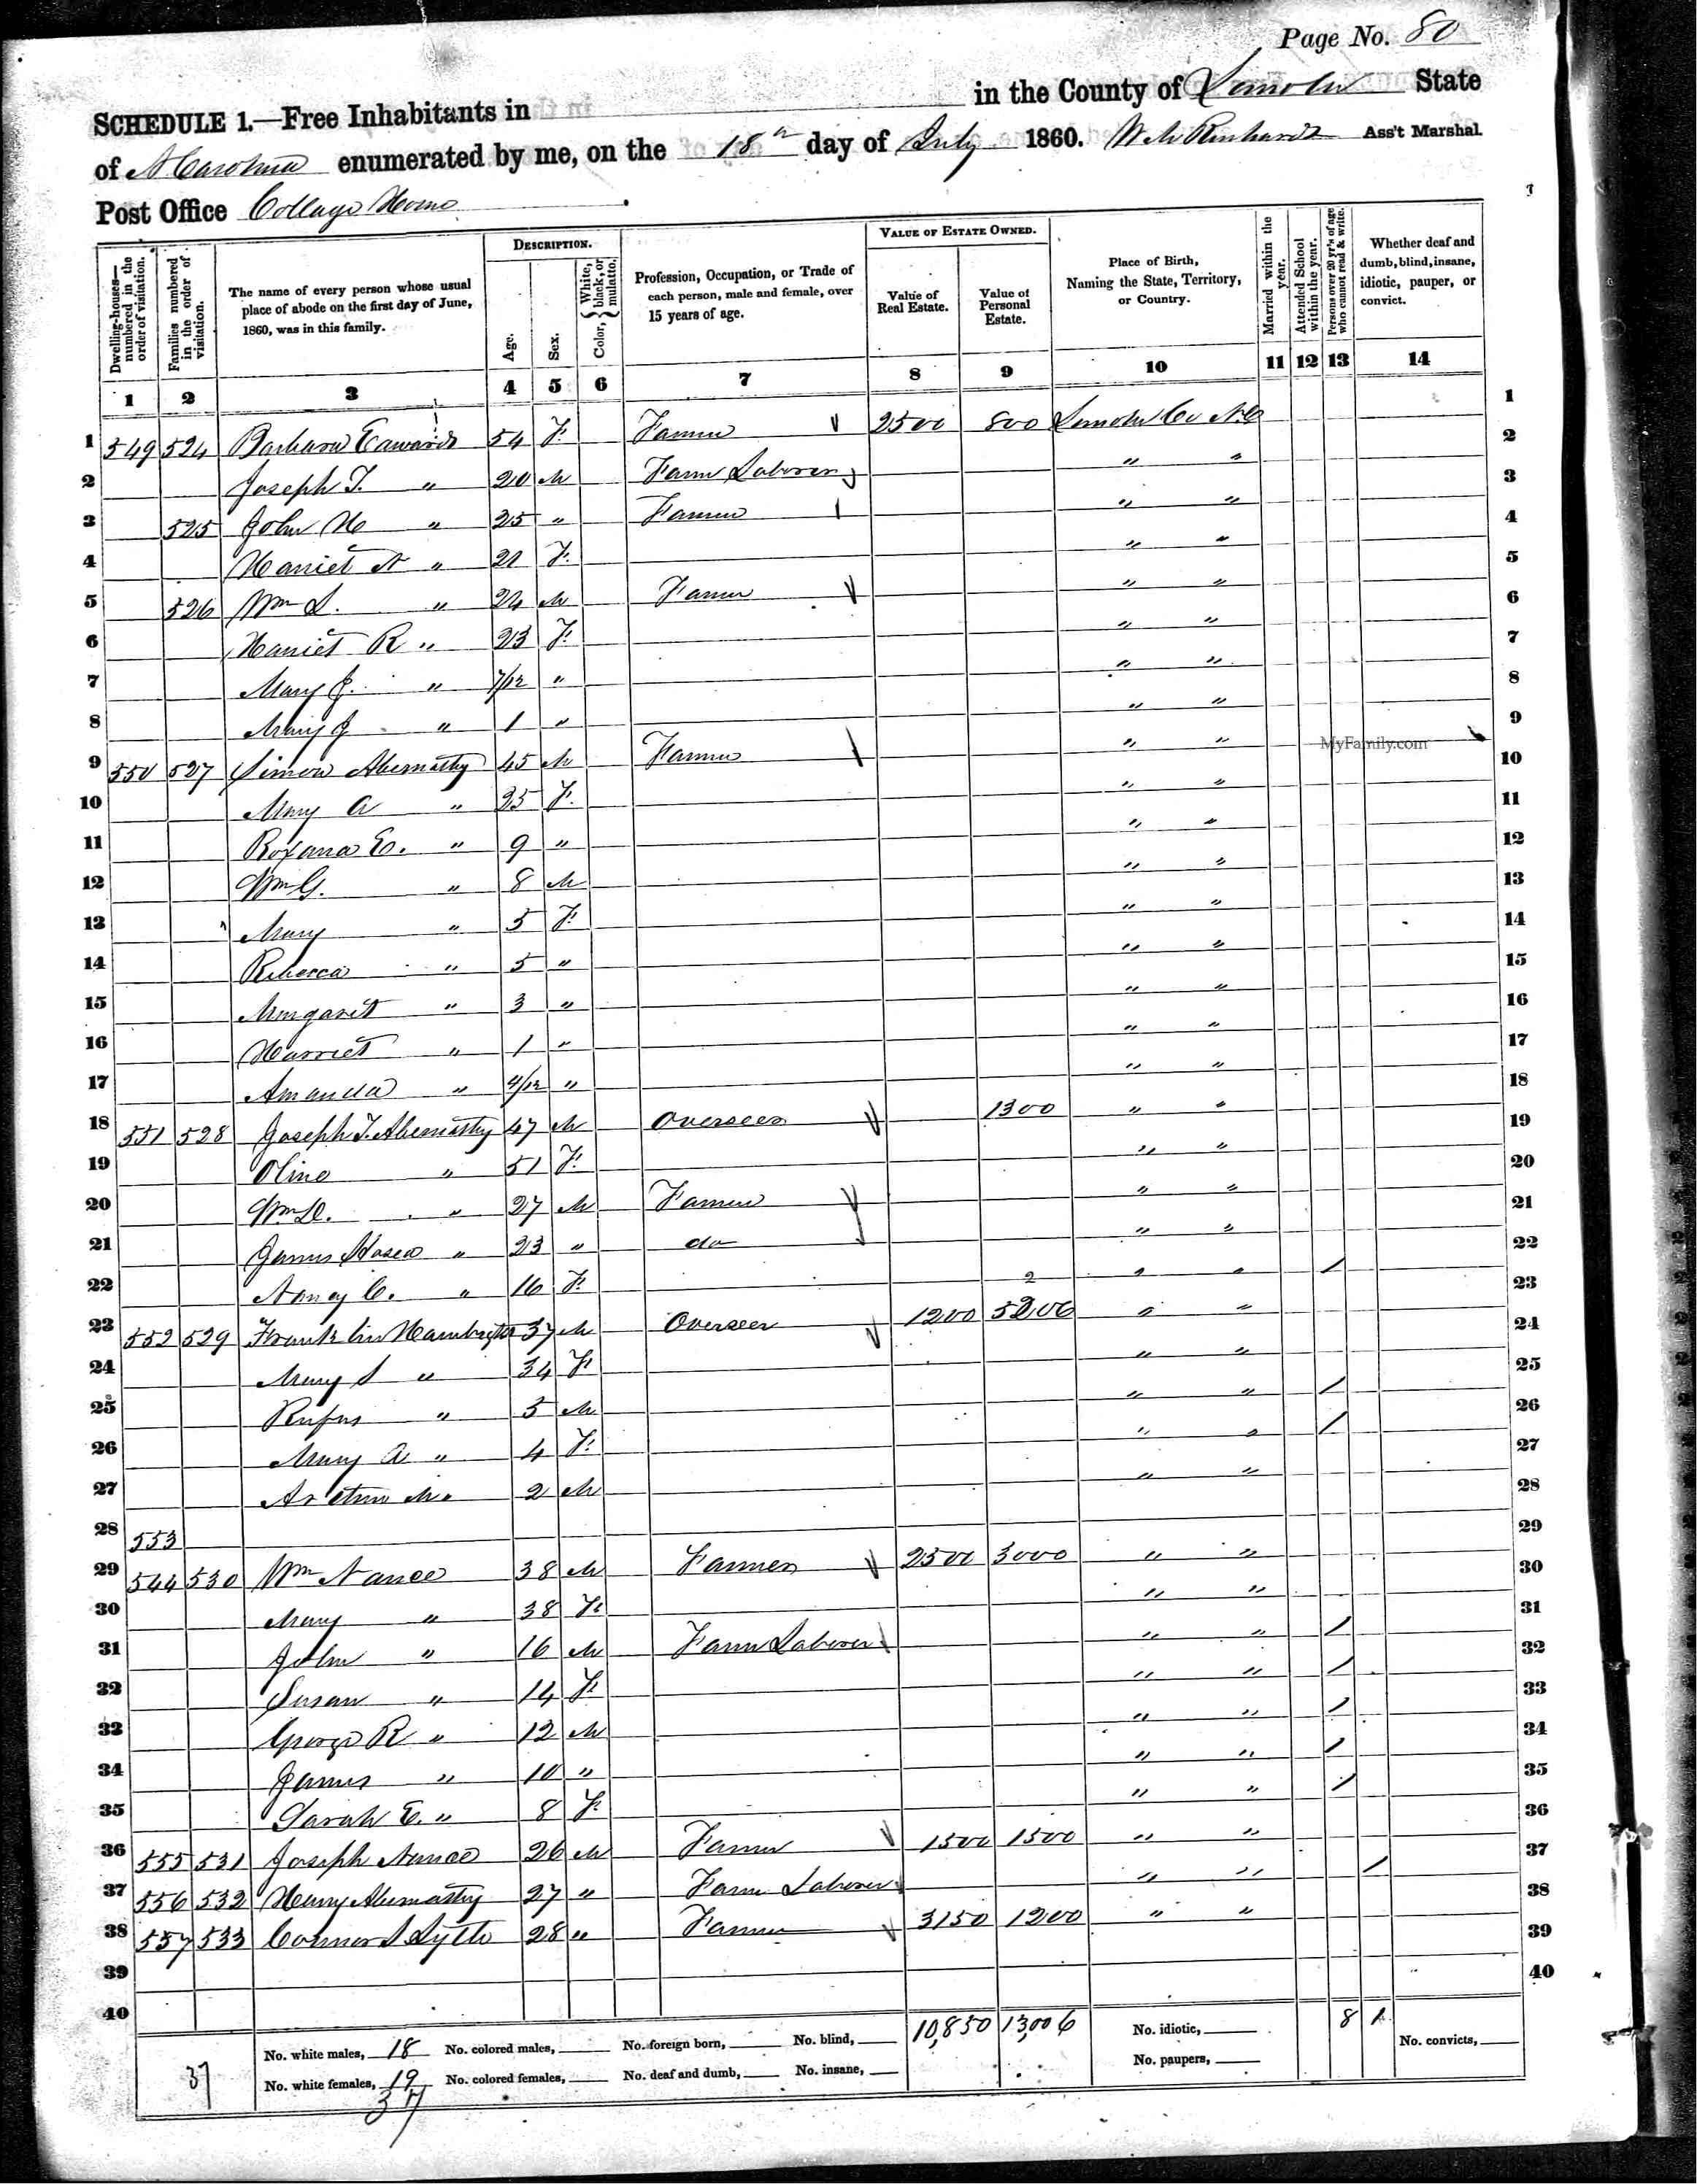 Page No. 80
SCHEDULE 1.—Free Inhabitants in in the County of Lincoln State
of N Carolina enumerated by me, on the 18th day of July 1860. Ass't Marshal.
Post Office Cottage Home
Dwelling-houses—numbered in the order of visitation.
Families numbered in the order of visitation.
The name of every person whose usual place of abode on the first day of June, 1860, was in this family.
DESCRIPTION.
Age.
Sex.
Color, White, black, or mulatto.
Profession, Occupation, or Trade of each person, male and female, over 15 years of age.
VALUE OF ESTATE OWNED.
Value of Real Estate.
Value of Personal Estate.
Place of Birth, Naming the State, Territory, or Country.
Married within the year.
Attended School within the year.
Persons over 20 yr's of age who cannot read & write.
Whether deaf and dumb, blind, insane, idiotic, pauper, or convict.
1 2 3 4 5 6 7 8 9 10 11 12 13 14
1 549 524 Barbara Edwards 54 F. Farmer 2500 800 Lincoln Co N.C 1
2 Joseph T. " 20 M Farm Laborer " " 2
3 525 John H " 25 " Farmer " " 3
4 Harriet N " 21 F. " " 4
5 526 Wm L. " 24 M Farmer " " 5
6 Harriet R " 23 F. " " 6
7 Mary J. " 7/12 " " " 7
8 Mary J " 1 " " " 8
9 550 527 Simon Abernathy 45 M Farmer " " 9
MyFamily.com
10 Mary A " 35 F. " " 10
11 Roxana E. " 9 " " " 11
12 Wm G. " 8 M " " 12
13 Mary " 5 F. " " 13
14 Rebecca " 5 " " " 14
15 Margaret " 3 " " " 15
16 Harriet " 1 " " " 16
17 Amanda " 4/12 " " " 17
18 551 528 Joseph T. Abernathy 47 M Overseer 1300 " " 18
19 Olive " 51 F. " " 19
20 Wm D. " 27 M Farmer " " 20
21 James Hosea " 23 " do " " 21
22 Nancy C. " 16 F. " " / 22
23 552 529 Franklin 37 M Overseer 1200 5206 " " 23
24 Mary S " 34 F. " " 24
25 Rufus " 5 M " " / 25
26 Mary A " 4 F. " " / 26
27 2 M " " 27
28 553 28
29 544 530 Wm Nance 38 M Farmer 2500 3000 " " 29
30 Mary " 38 F. " " 30
31 John " 16 M Farm Laborer " " / 31
32 Susan " 14 F. " " / 32
33 George R " 12 M " " / 33
34 James " 10 " " " / 34
35 Sarah E. " 8 F. " " / 35
36 555 531 Joseph Nance 26 M Farmer 1500 1500 " " 36
37 556 532 Henry Abernathy 27 " Farm Laborer " " / 37
38 557 533 Connor S Lytle 28 " Farmer 3150 1200 " " 38
39 39
40 40
No. white males, 18 No. colored males, No. foreign born, No. blind, 10,850 13,006 No. idiotic, 8 1 No. convicts,
37 No. white females, 19 No. colored females, No. deaf and dumb, No. insane, No. paupers,
37